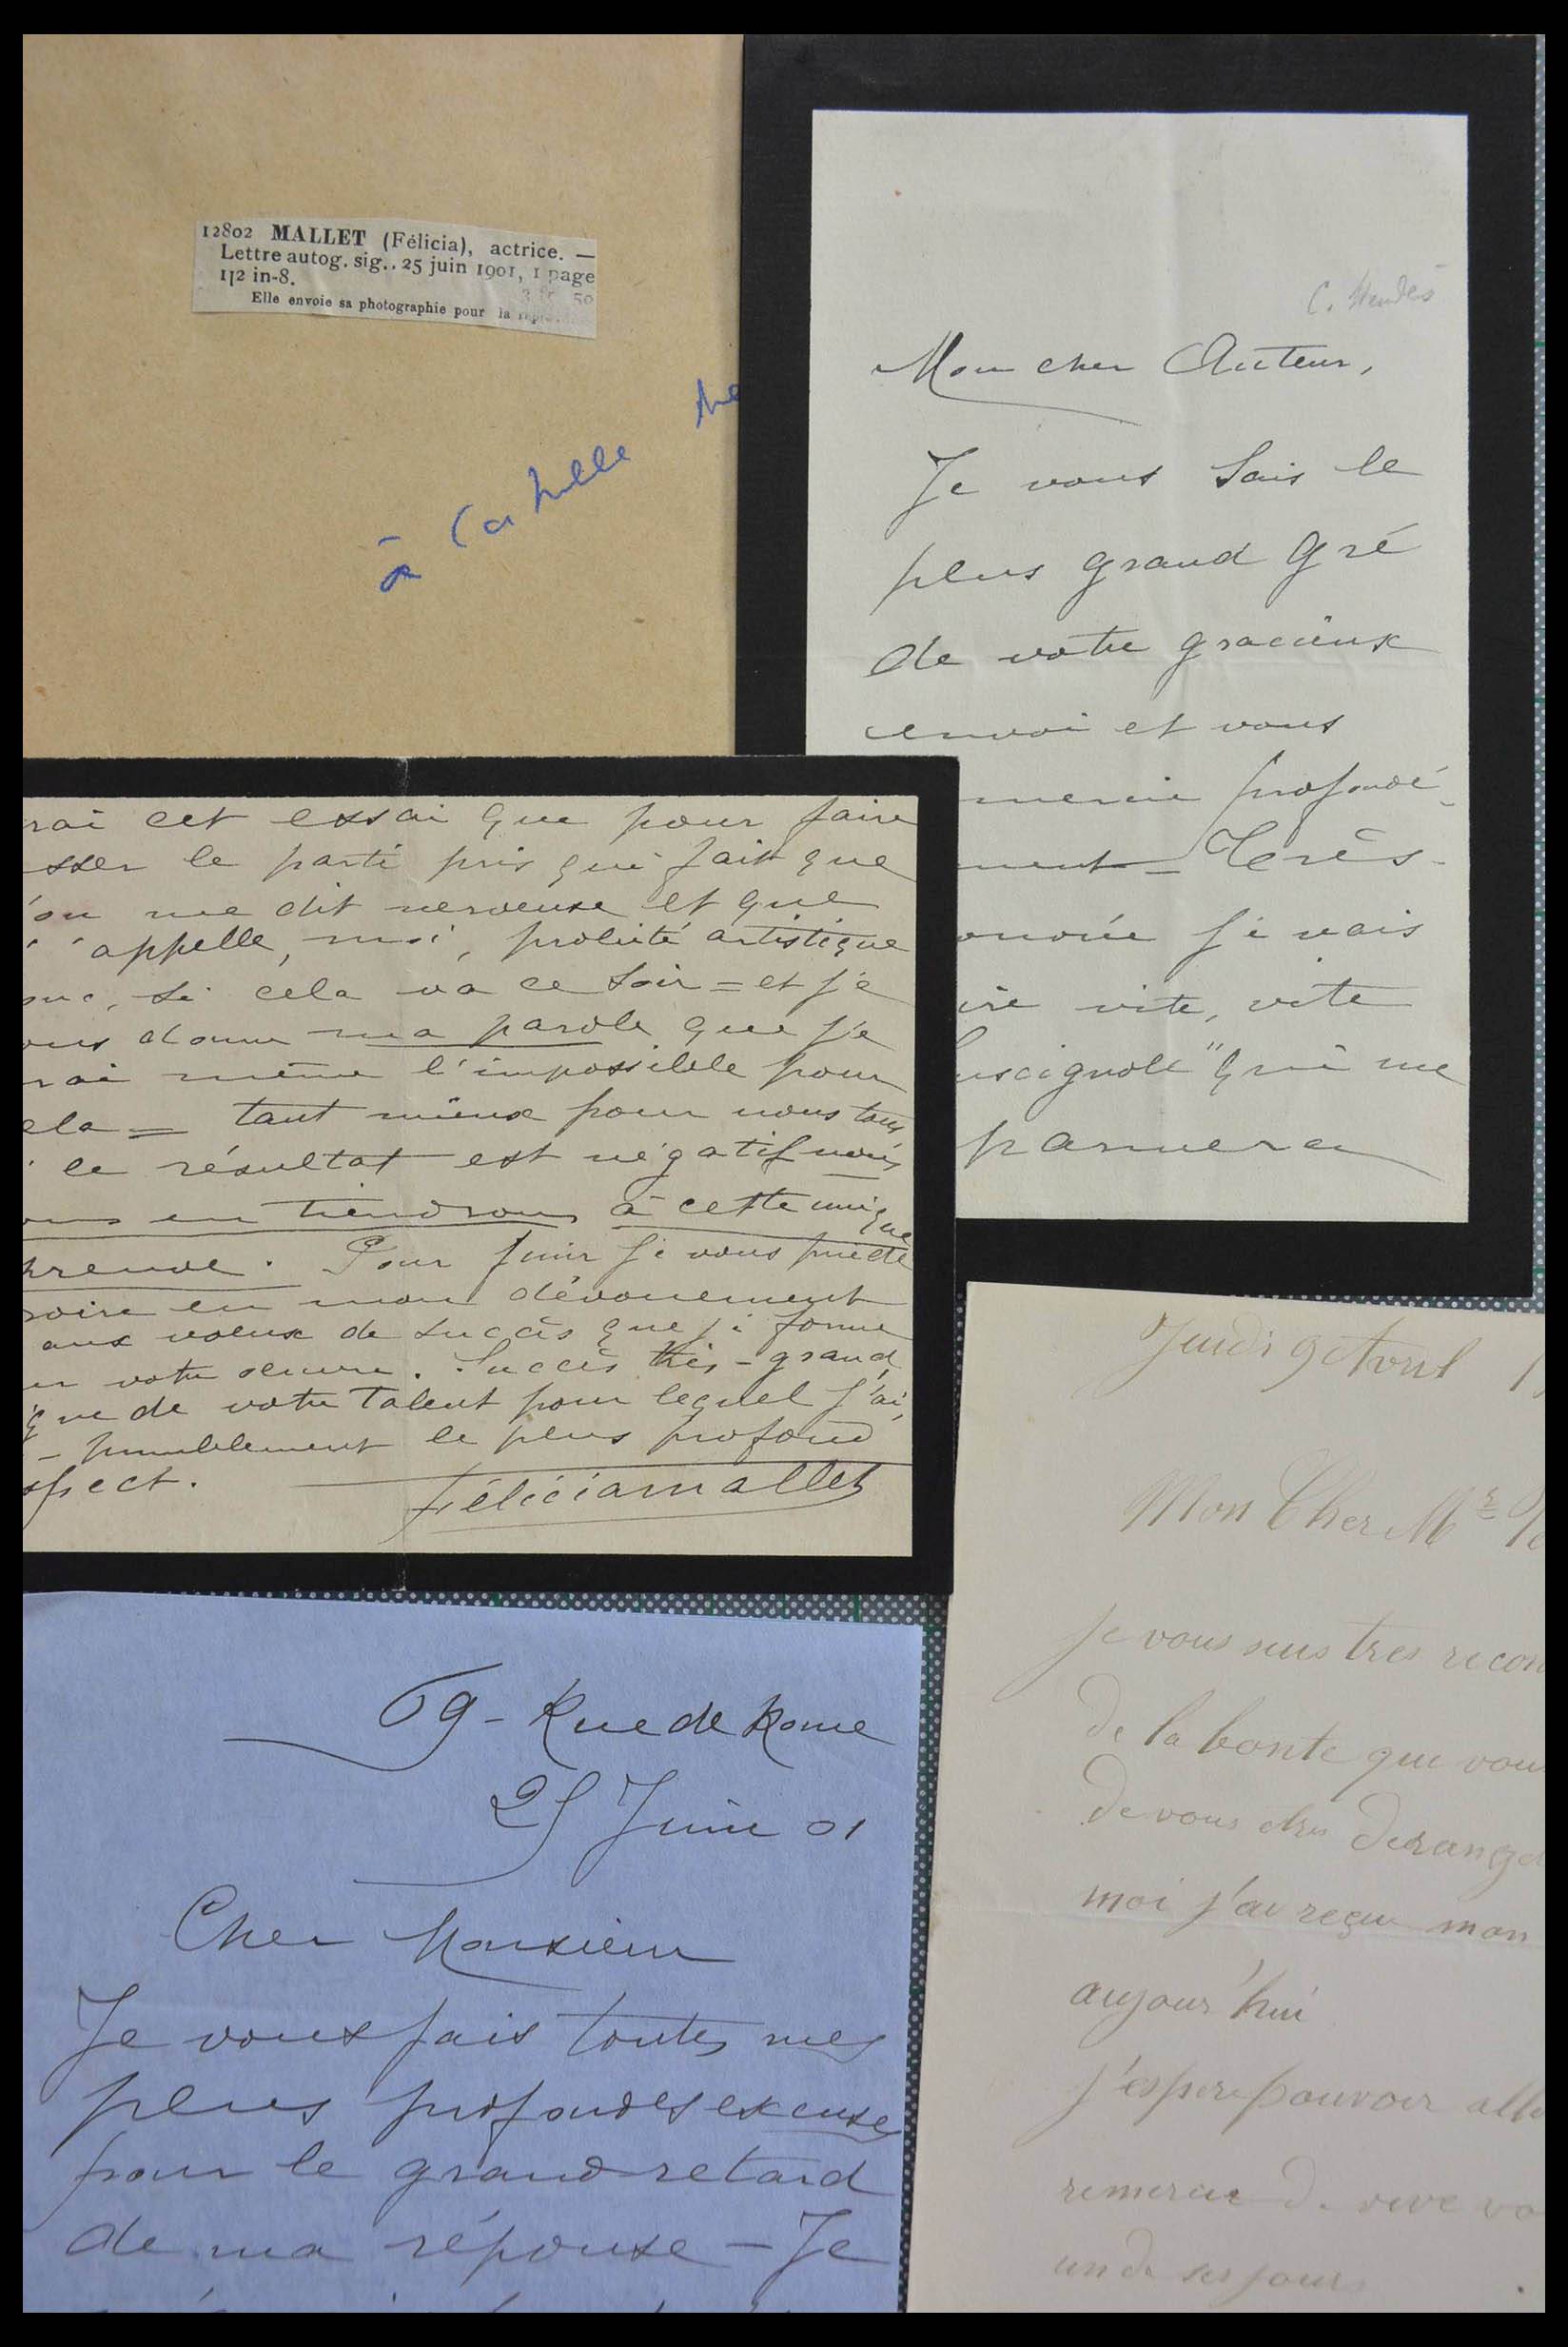 12802 MALLET (Félicia), actrice. —
Lettre autog. sig.. 25 juin 1901, 1 page
1|2 in-8.
3 fr. 50
Elle envoie sa photographie pour la
à Catulle Me
C. Mendès
Mon cher Auteur,
Je vous sais le
plus grand gré
de votre gracieux
envoi et vous
mercie profondé-
ment = Très-
onorée je vais
ire vite, vite
uscignole" qui me
parviera
rai cet essai que pour faire
sser le parti pris qui fait que
'on me dit nerveuse et que
j'appelle, moi, probité artistique
onc, si cela va ce soir = et je
ous donne ma parole que je
rai même l'impossible pour
ela = tant mieux pour nous tous
le résultat est négatif nous
ous en tiendrons à cette unique
preuve. Pour finir je vous prie de
roire en mon dévouement
aux voeux de succès que je forme
ur votre oeuvre. Succès très-grand,
que de votre talent pour lequel j'ai,
- humblement le plus profond
spect.
Félicia Mallet
69 - Rue de Rome
25 Juin 01
Cher Monsieur
Je vous fais toutes mes
plus profondes excuses
pour le grand retard
de ma réponse - Je
Jeudi 9 Avril 1
Mon Cher Mr
je vous suis tres recon
de la bonte que vous
de vous etre derange
moi j'ai reçu mon
aujour'hui
j'espere pouvoir alle
remercie de vive vo
un de ses jours